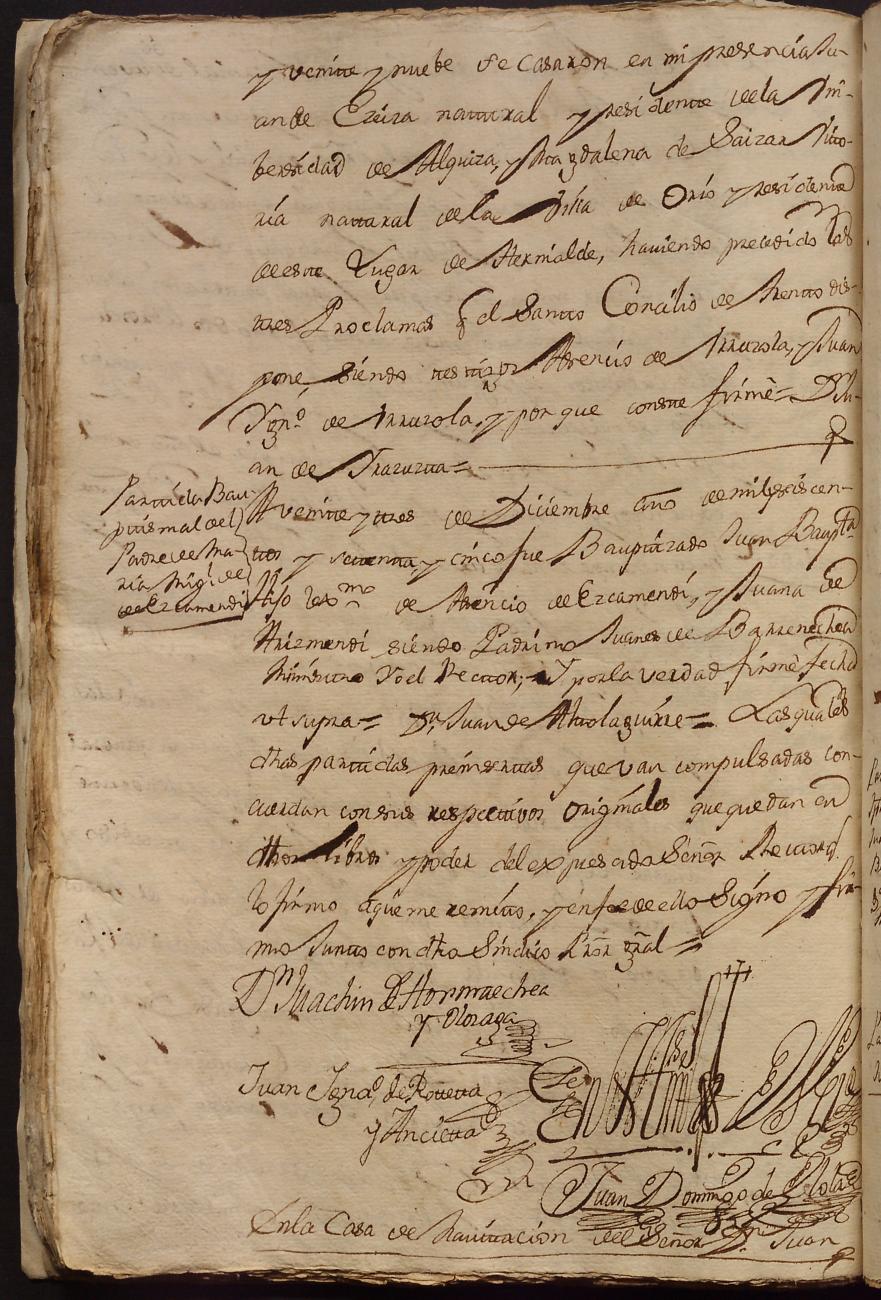 y veintte y nuebe se casaron en mi presencia Ju-
an de Eziza natturaL y residentte de la Uni-
bersidad de Alquiza, y Magdalena de Saizar Vitto-
ria natturaL de la Villa de Orio y residente
de este Lugar de Hermialde, haviendo precedido las
tres Proclamas q el Santto Concilio de Trentto dis-
pone siendo testigos Asencio de Irurzola, y Juan
Ygn.º de Irurzola, y por que constte firmè = D.n Ju-
an de Yrazuzta =
Parttida Bau-
ptismal del
Padre de Ma-
ria Mig.l de
de Ezcamendi
A veintte y tres de Diciembre año de mil y seiscen-
ttos y settentta y cinco fue Bauptizado Juan Bauptta
Hijo lex.mo de Asencio de Ezcamendi, y Juana de
Arizmendi siendo Padrino Juanes de Barrenechea
Ministro Yo el Rector, Y por la verdad firmè fecha
ut supra = D.n Juan de Altolaguirre = Las quales
dhas parttidas preinserttas que van compulsadas con-
cuerdan con sus respecttivos originales que quedan en
dhos libros y poder del expresado Señor Rector
lo firmo aque me remitto, y en fee de ello Signo y fir-
mo Juntto con dho Sindico Prõr gral =
D.n Machin de Hormaechea
y Olozaga
Juan Ignaº de Rottetta
y Ancietta
En
Juan Domingo de
En la Casa de havittacion del Señor D.n Juan